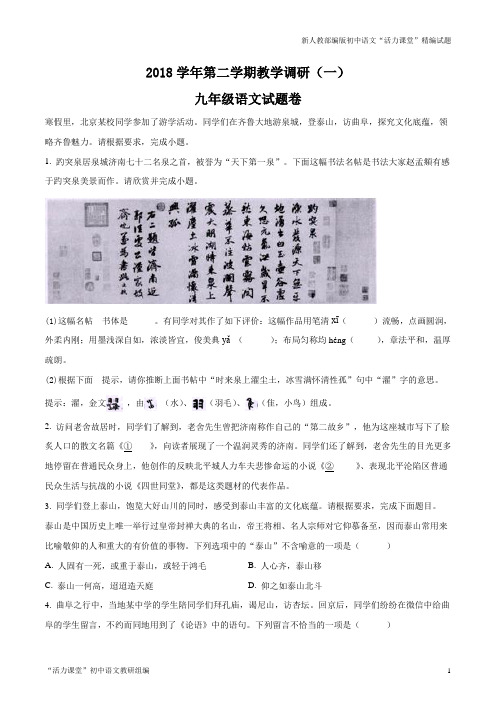 新人教部编版初中语文“活力课堂”精编试题
2018学年第二学期教学调研（一）
九年级语文试题卷
寒假里，北京某校同学参加了游学活动。同学们在齐鲁大地游泉城，登泰山，访曲阜，探究文化底蕴，领
略齐鲁魅力。请根据要求，完成小题。
1. 趵突泉居泉城济南七十二名泉之首，被誉为“天下第一泉”。下面这幅书法名帖是书法大家赵孟頫有感
于趵突泉美景而作。请欣赏并完成小题。
趵突泉
濼水發源天下無平
地湧出白玉壺谷虛
久恐元氣洩歲旱不
愁東海枯雲霧潤
蒸華不注波瀾聲
震大明湖時來泉上
濯塵土冰雪滿懷清
興孤
(1)这幅名帖 书体是______。有同学对其作了如下评价：这幅作品用笔清xī（ ）流畅，点画圆润，
外柔内刚；用墨浅深自如，浓淡皆宜，俊美典yǎ（ ）；布局匀称均héng（ ），章法平和，温厚
疏朗。
(2)根据下面 提示，请你推断上面书帖中“时来泉上濯尘土，冰雪满怀清性孤”句中“濯”字的意思。
提示：濯，金文 ，由 （水）、 （羽毛）、 （隹，小鸟）组成。
2. 访问老舍故居时，同学们了解到，老舍先生曾把济南称作自己的“第二故乡”，他为这座城市写下了脍
炙人口的散文名篇《① 》，向读者展现了一个温润灵秀的济南。同学们还了解到，老舍先生的目光更多
地停留在普通民众身上，他创作的反映北平城人力车夫悲惨命运的小说《② 》、表现北平沦陷区普通
民众生活与抗战的小说《四世同堂》，都是这类题材的代表作品。
3. 同学们登上泰山，饱览大好山川的同时，感受到泰山丰富的文化底蕴。请根据要求，完成下面题目。
泰山是中国历史上唯一举行过皇帝封禅大典的名山，帝王将相、名人宗师对它仰慕备至，因而泰山常用来
比喻敬仰的人和重大的有价值的事物。下列选项中的“泰山”不含喻意的一项是（ ）
A. 人固有一死，或重于泰山，或轻于鸿毛 B. 人心齐，泰山移
C. 泰山一何高，迢迢造天庭 D. 仰之如泰山北斗
4. 曲阜之行中，当地某中学的学生陪同学们拜孔庙，谒尼山，访杏坛。回京后，同学们纷纷在微信中给曲
阜的学生留言，不约而同地用到了《论语》中的语句。下列留言不恰当的一项是（ ）
“活力课堂”初中语文教研组编 1